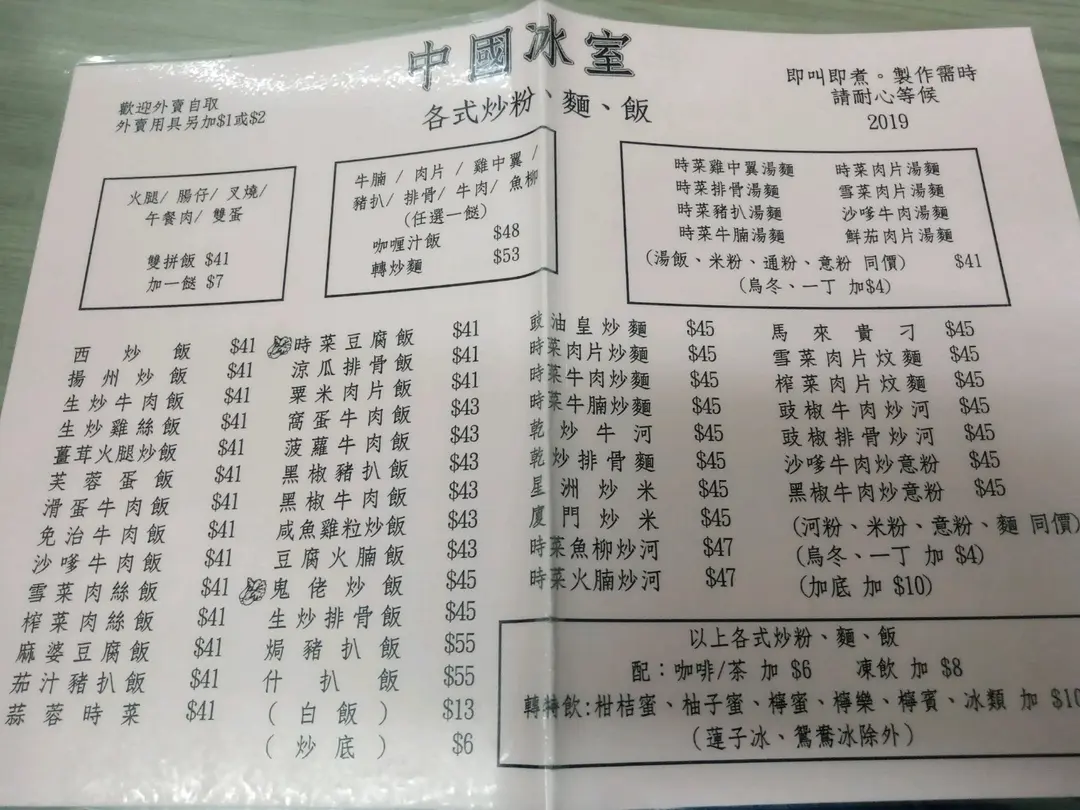 中國冰室
各式炒粉、麵、飯
歡迎外賣自取
外賣用具另加$1或$2
即叫即煮。製作需時
請耐心等候
2019
火腿/ 腸仔/ 叉燒/
午餐肉/ 雙蛋
雙拼飯 $41
加一餸 $7
牛腩 / 肉片 / 雞中翼 /
豬扒/ 排骨/ 牛肉/ 魚柳
(任選一餸)
咖喱汁飯 $48
轉炒麵 $53
時菜雞中翼湯麵 時菜肉片湯麵
時菜排骨湯麵 雪菜肉片湯麵
時菜豬扒湯麵 沙嗲牛肉湯麵
時菜牛腩湯麵 鮮茄肉片湯麵
(湯飯、米粉、通粉、意粉 同價) $41
(烏冬、一丁 加$4)
西炒飯 $41
揚州炒飯 $41
生炒牛肉飯 $41
生炒雞絲飯 $41
薑茸火腿炒飯 $41
芙蓉蛋飯 $41
滑蛋牛肉飯 $41
免治牛肉飯 $41
沙嗲牛肉飯 $41
雪菜肉絲飯 $41
榨菜肉絲飯 $41
麻婆豆腐飯 $41
茄汁豬扒飯 $41
蒜蓉時菜 $41
時菜豆腐飯 $41
涼瓜排骨飯 $41
粟米肉片飯 $41
窩蛋牛肉飯 $43
菠蘿牛肉飯 $43
黑椒豬扒飯 $43
黑椒牛肉飯 $43
咸魚雞粒炒飯 $43
豆腐火腩飯 $43
鬼佬炒飯 $45
生炒排骨飯 $45
焗豬扒飯 $55
什扒飯 $55
(白飯) $13
(炒底) $6
豉油皇炒麵 $45
時菜肉片炒麵 $45
時菜牛肉炒麵 $45
時菜牛腩炒麵 $45
乾炒牛河 $45
乾炒排骨麵 $45
星洲炒米 $45
廈門炒米 $45
時菜魚柳炒河 $47
時菜火腩炒河 $47
馬來貴刁 $45
雪菜肉片炆麵 $45
榨菜肉片炆麵 $45
豉椒牛肉炒河 $45
豉椒排骨炒河 $45
沙嗲牛肉炒意粉 $45
黑椒牛肉炒意粉 $45
(河粉、米粉、意粉、麵 同價)
(烏冬、一丁 加 $4)
(加底 加 $10)
以上各式炒粉、麵、飯
配：咖啡/茶 加 $6 凍飲 加 $8
轉特飲:柑桔蜜、柚子蜜、檸蜜、檸樂、檸賓、冰類 加 $10
(蓮子冰、鴛鴦冰除外)